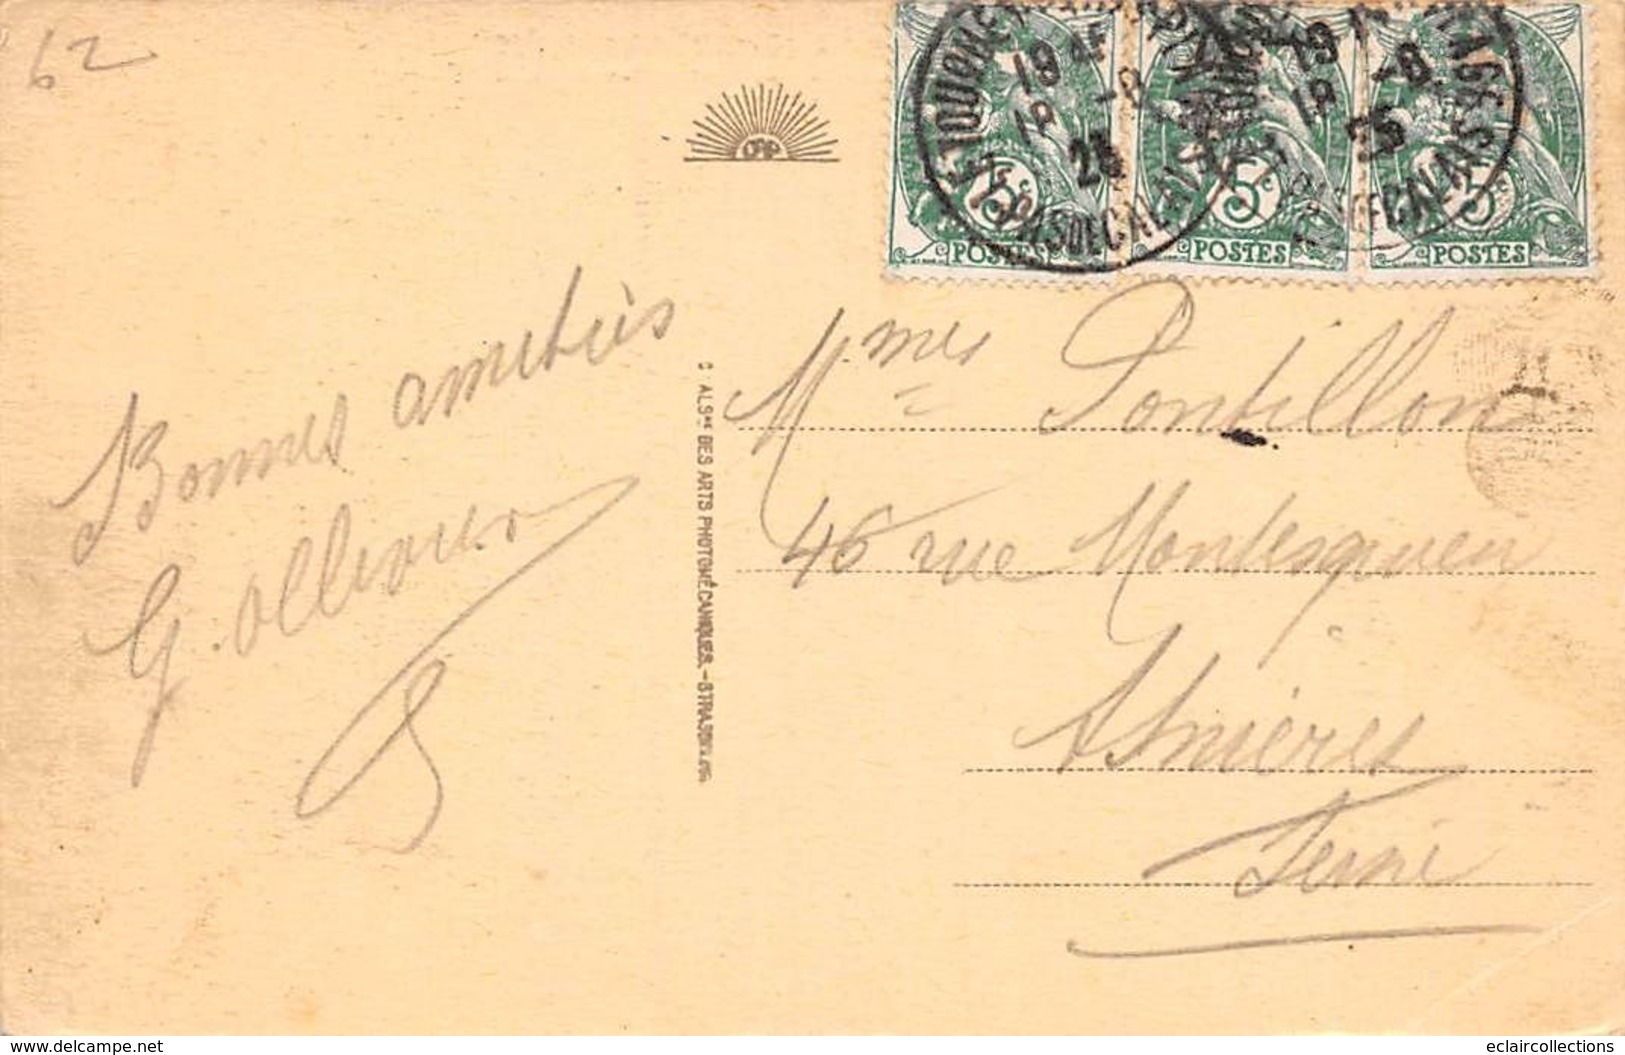 62
CAP
Bonnes amitiés
G. Ollivier
Cie ALSNE DES ARTS PHOTOMÉCANIQUES.-STRASBOURG
LE TOUQUET PARIS-PLAGE
PAS DE CALAIS
19
5c 5c 5c
POSTES POSTES POSTES
Mmes Pontillon
46 rue Montesquieu
Asnières
Seine
www.delcampe.net
eclaircollections